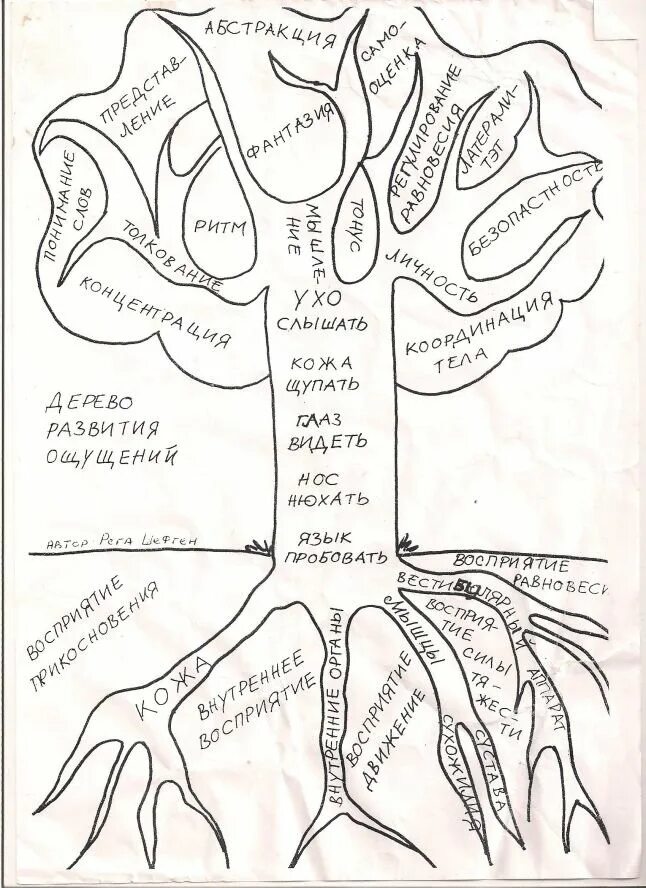 АБСТРАКЦИЯ
САМО-
ОЦЕНКА
ПРЕДСТАВ-
ЛЕНИЕ
ФАНТАЗИЯ
РЕГУЛИРОВАНИЕ
РАВНОВЕСИЯ
ЛАТЕРАЛИ-
ТЭТ
ПОНИМАНИЕ
СЛОВ
РИТМ
МЫШЛЕ-
НИЕ
ТОНУС
БЕЗОПАСТНОСТЬ
ТОЛКОВАНИЕ
ЛИЧНОСТЬ
КОНЦЕНТРАЦИЯ
КООРДИНАЦИЯ
ТЕЛА
УХО
СЛЫШАТЬ
КОЖА
ЩУПАТЬ
ГЛАЗ
ВИДЕТЬ
НОС
НЮХАТЬ
ЯЗЫК
ПРОБОВАТЬ
ДЕРЕВО
РАЗВИТИЯ
ОЩУЩЕНИЙ
АВТОР РЕГА ШЕФГЕН
ВОСПРИЯТИЕ
ПРИКОСНОВЕНИЯ
КОЖА
ВНУТРЕННЕЕ
ВОСПРИЯТИЕ
ВНУТРЕННИЕ ОРГАНЫ
ВОСПРИЯТИЕ
ДВИЖЕНИЕ
МЫШЦЫ
СУХОЖИЛИЯ
СУСТАВА
ВОСПРИЯ-
ТИЕ
СИЛЫ
ТЯ-
ЖЕС-
ТИ
ВЕСТИБУЛЯРНЫЙ
АППАРАТ
ВОСПРИЯТИЕ
РАВНОВЕСИ